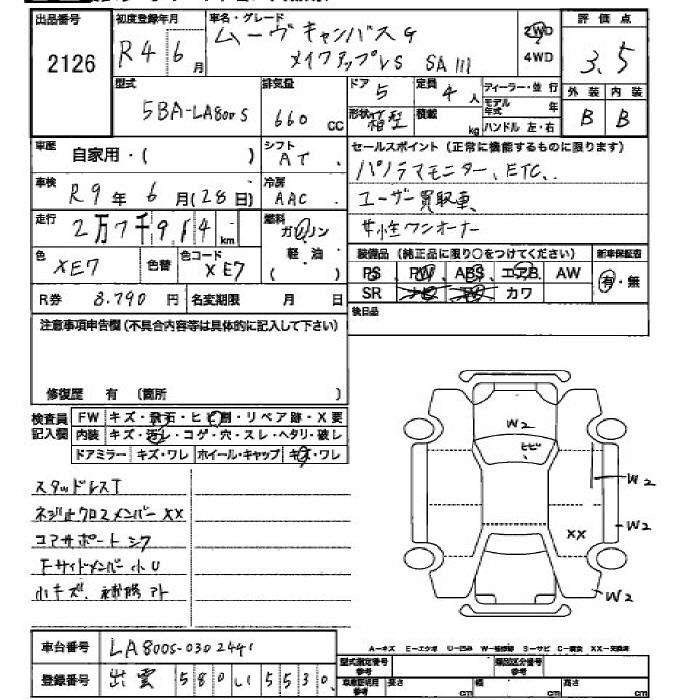 出品番号 初度登録年月 車名・グレード 評価点
2126 R4年6月 ムーヴキャンバス G 2WD 3.5
メイクアップVS SAIII 4WD
型式 排気量 ドア 定員 ディーラー・並行 外装 内装
5BA-LA800S 660 CC 5 4人 モデル年式 年 B B
形状 箱型 積載 kg ハンドル 左・右
車歴 自家用・( ) シフト AT セールスポイント(正常に機能するものに限ります)
パノラマモニター、ETC、
車検 R9年6月(28日) 冷房 AAC ユーザー買取車
走行 2万7千914km 燃料 ガソリン 女性ワンオーナー
軽油
( )
色 XE7 色替 色コード XE7 装備品(純正品に限り〇をつけてください) 新車保証書
PS PW ABS エアB AW 有・無
R券 8.790円 名変期限 月 日 SR ナビ TV カワ
注意事項申告欄(不具合内容等は具体的に記入して下さい) 後日品
修復歴 有 (箇所 )
検査員記入欄 FW キズ・飛石・ヒビ割・リペア跡・X要
内装 キズ・汚レ・コゲ・穴・スレ・ヘタリ・破レ
ドアミラー キズ・ワレ ホイール・キャップ キズ・ワレ
W2
ヒビ
スタッドレスT W2
ネジ止クロスメンバーXX W2
コアサポートシワ XX
Fサイドメンバー小U
小キズ、補修アト W2
車台番号 LA800S-0302441
A-キズ E-エクボ U-凹み W-補修跡 S-サビ C-腐食 XX-交換済
登録番号 出雲 580 い 5530
型式指定番号 類別区分番号
長さ cm 幅 cm 高さ cm